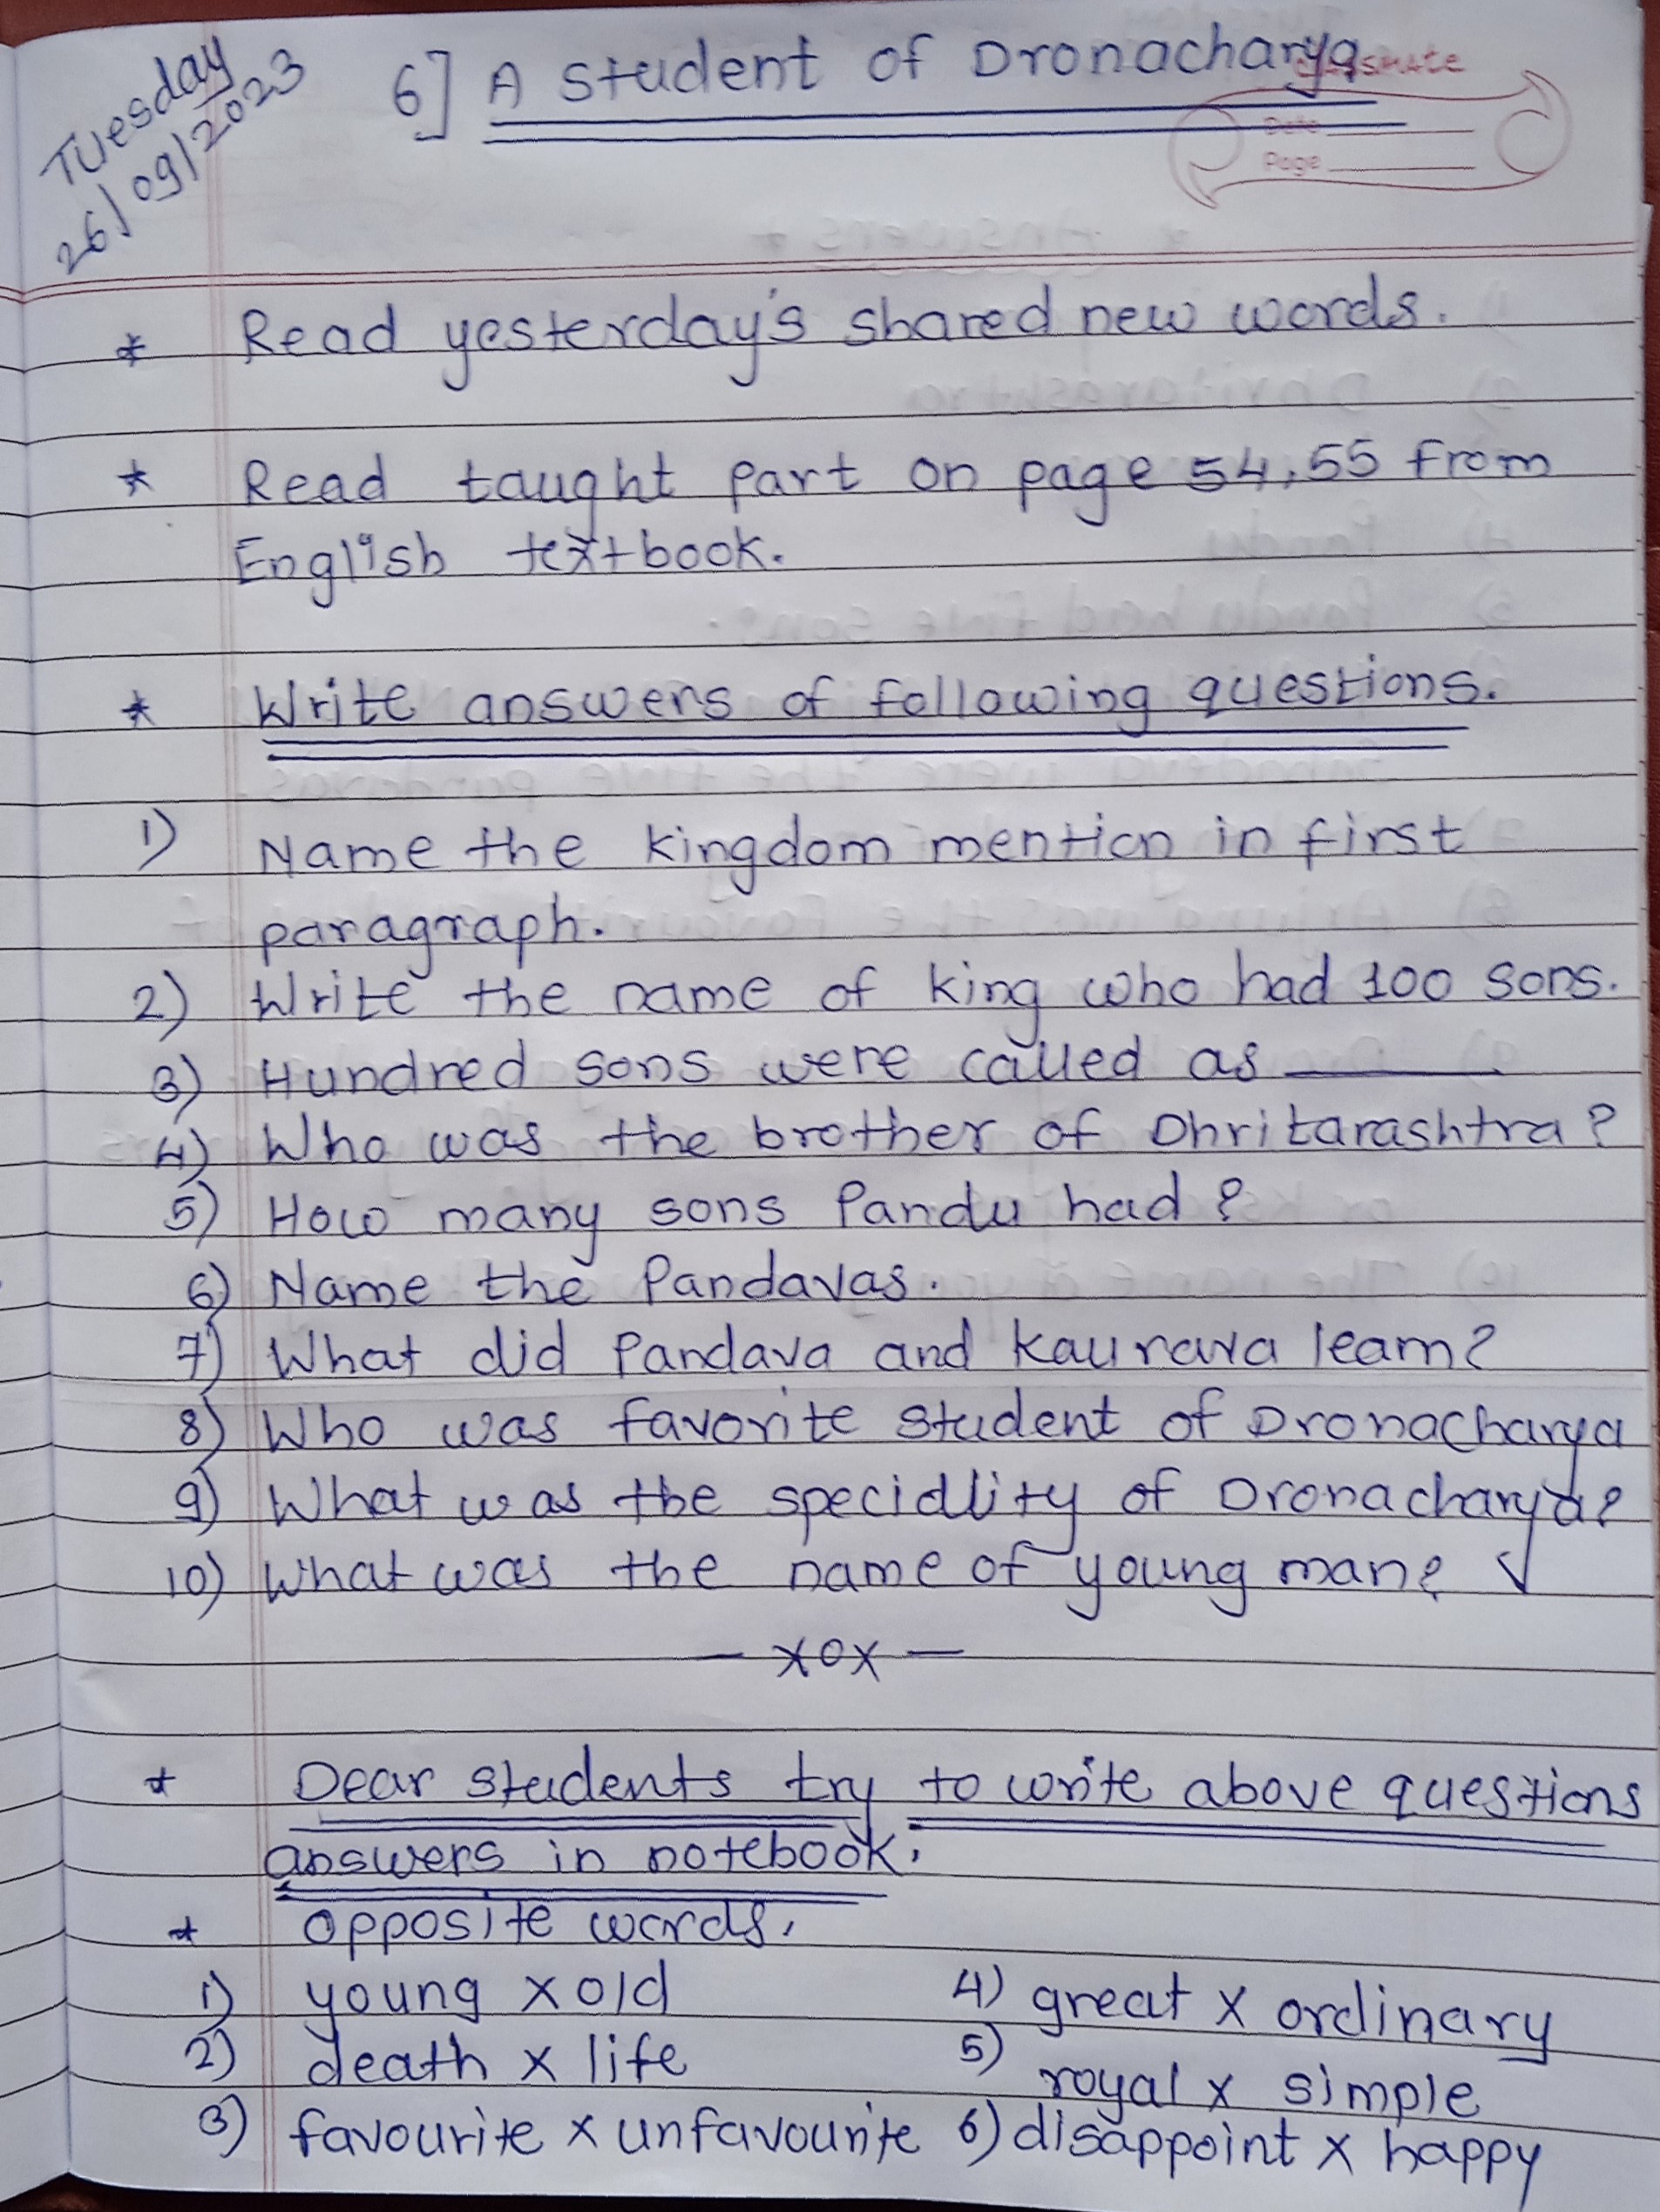 Tuesday
26/09/2023
6] A student of Dronacharya
classmate
Date
Page
* Read yesterday's shared new words.
* Read taught part on page 54,55 from
English textbook.
* Write answers of following questions.
1) Name the kingdom mention in first
paragraph.
2) Write the name of king who had 100 sons.
3) Hundred sons were called as ______.
4) Who was the brother of Dhritarashtra?
5) How many sons Pandu had?
6) Name the Pandavas.
7) What did Pandava and Kaurava learn?
8) Who was favorite student of Dronacharya
9) What was the speciality of Dronacharya?
10) What was the name of young man?
— xox —
* Dear students try to write above questions
answers in notebook.
* opposite words.
1) young x old 4) great x ordinary
2) death x life 5) royal x simple
3) favourite x unfavourite 6) disappoint x happy